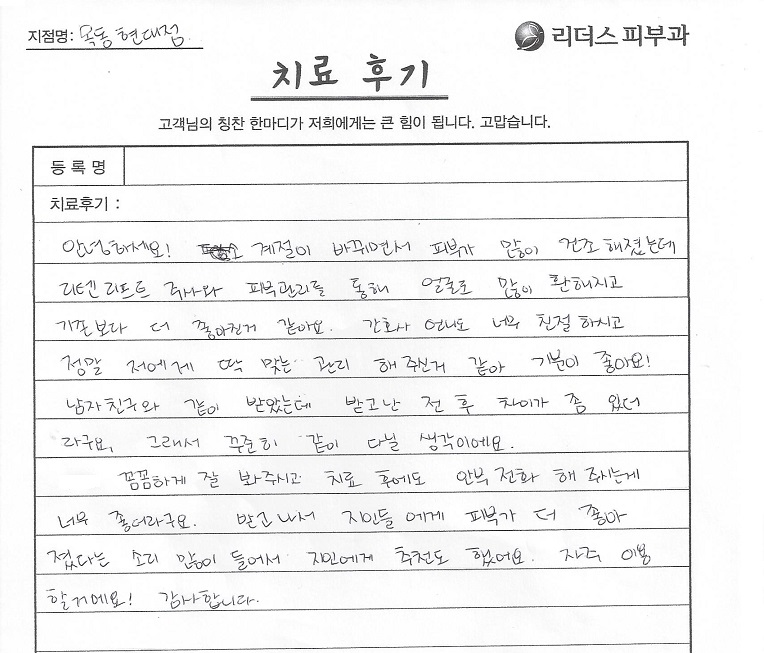 지점명: 목동 현대점
리더스 피부과
치료 후기
고객님의 칭찬 한마디가 저희에게는 큰 힘이 됩니다. 고맙습니다.
등록명
치료후기 :
안녕하세요! 계절이 바뀌면서 피부가 많이 건조해졌는데
리텐리프트 주사와 피부관리를 통해 얼굴도 많이 환해지고
기존보다 더 좋아진거 같아요. 간호사 언니도 너무 친절하시고
정말 저에게 딱 맞는 관리 해주신거 같아 기분이 좋아요!
남자친구와 같이 받았는데 받고난 전 후 차이가 좀 있더
라구요, 그래서 꾸준히 같이 다닐 생각이에요.
꼼꼼하게 잘 봐주시고 치료 후에도 안부 전화 해 주시는게
너무 좋더라구요. 받고나서 지인들에게 피부가 더 좋아
졌다는 소리 많이 들어서 지인에게 추천도 했어요. 자주 이용
할거에요! 감사합니다.